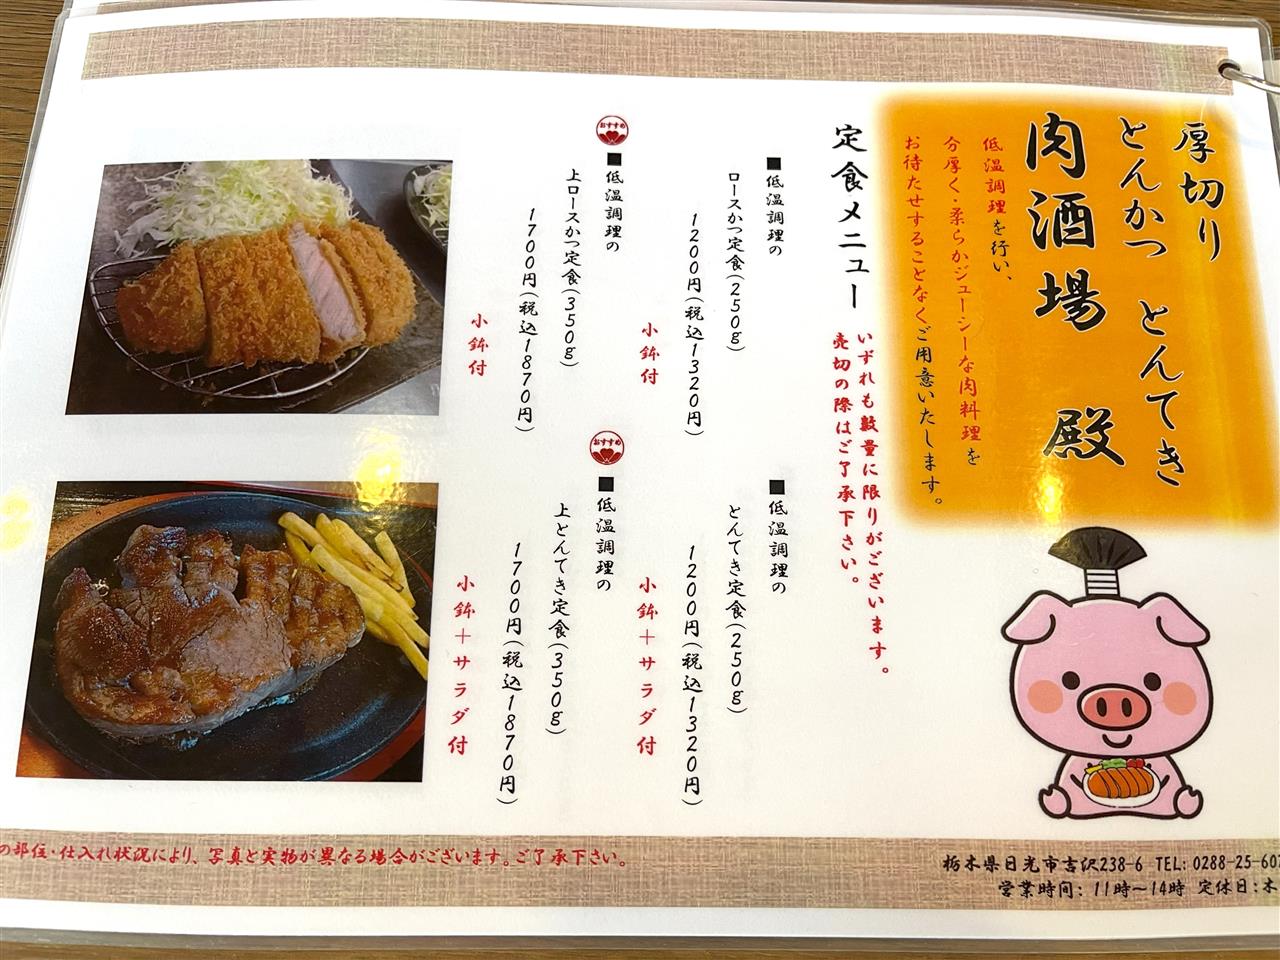 厚切り
とんかつ とんてき
肉酒場 殿
低温調理を行い、
分厚く・柔らかジューシーな肉料理を
お待たせすることなくご用意いたします。
定食メニュー
いずれも数量に限りがございます。
売切の際はご了承下さい。
■低温調理の
ロースかつ定食(250g)
1200円(税込1320円)
小鉢付
おすすめ
■低温調理の
上ロースかつ定食(350g)
1700円(税込1870円)
小鉢付
■低温調理の
とんてき定食(250g)
1200円(税込1320円)
小鉢+サラダ付
おすすめ
■低温調理の
上とんてき定食(350g)
1700円(税込1870円)
小鉢+サラダ付
の部位・仕入れ状況により、写真と実物が異なる場合がございます。ご了承下さい。
栃木県日光市吉沢238-6 TEL: 0288-25-607
営業時間: 11時~14時 定休日:木